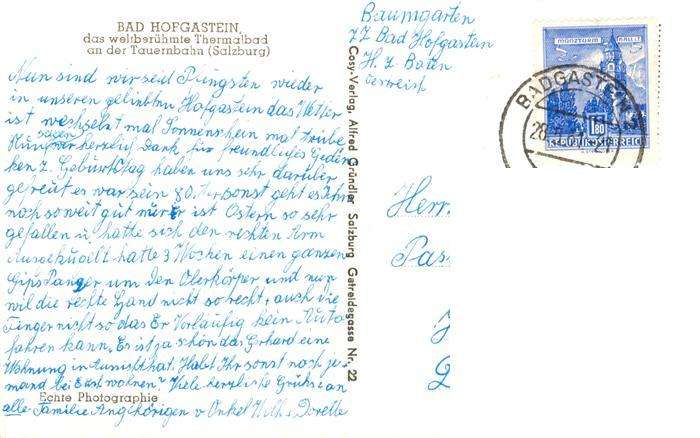 BAD HOFGASTEIN,
das weltberühmte Thermalbad
an der Tauernbahn (Salzburg)
Nun sind wir seit Pfingsten wieder
in unseren geliebten Hofgastein das Wetter
ist wechselnd mal Sonnenschein mal trübe
Nun sagen wir herzlich Dank für freundliches Geden
ken z. Geburtstag haben uns sehr darüber
gefreut es war sein 80. sonst geht es ihm
noch soweit gut nur Er ist Ostern so sehr
gefallen u hatte sich den rechten Arm
Ausgekugelt hatte 3 Wochen einen ganzen
GipsPanzer um den Oberkörper und nun
wil die rechte Hand nicht so recht, auch die
Finger nicht so das Er Vorläufig kein Auto
fahren kann. Es ist ja schön das Gerhard eine
Wohnung in hat. Habt Ihr sonst noch je-
mand bei Euch wohnen? Viele herzliche Grüße an
alle Familie Angehörigen v Onkel Willi Dorette
Echte Photographie
Cosy-Verlag, Alfred Gründler, Salzburg, Getreidegasse Nr. 22
Baumgarten
77 Bad Hofgastein
H. z. Boten
Österreich
MÜNZTURM HALL
S 1.80
REPUBLIK ÖSTERREICH
BADGASTEIN 2
Herr.
Pas